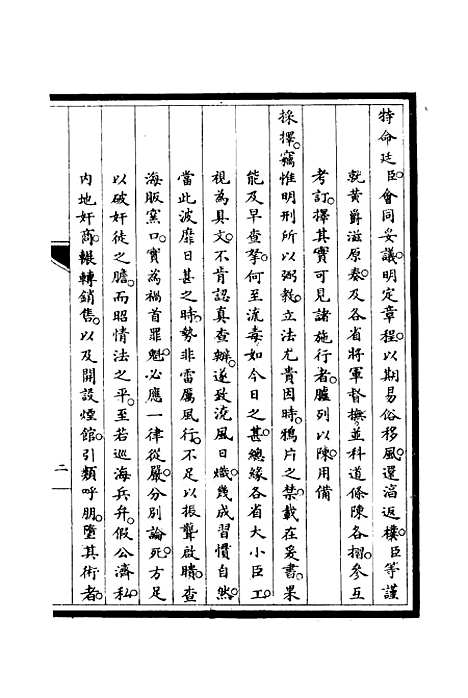 特命廷臣會同妥議明定章程以期易俗移風還滔返樸臣等謹
就黃爵滋原奏及各省將軍督撫並科道條陳各摺參互
考訂擇其實可見諸施行者臚列以陳用備
採擇竊惟明刑所以弼敎立法尤貴因時鴉片之禁載在爰書果
能及早查拏何至流毒如今日之甚總緣各省大小臣工
視為具文不肯認真查辦遂致澆風日熾幾成習慣自然
當此波靡日甚之時勢非雷厲風行不足以振聾啟聵查
海販窯口實為禍首罪魁必應一律從嚴分別論死方足
以破奸徒之膽而昭情法之平至若巡海兵弁假公濟私
內地奸商輾轉銷售以及開設煙館引類呼朋墮其術者
二